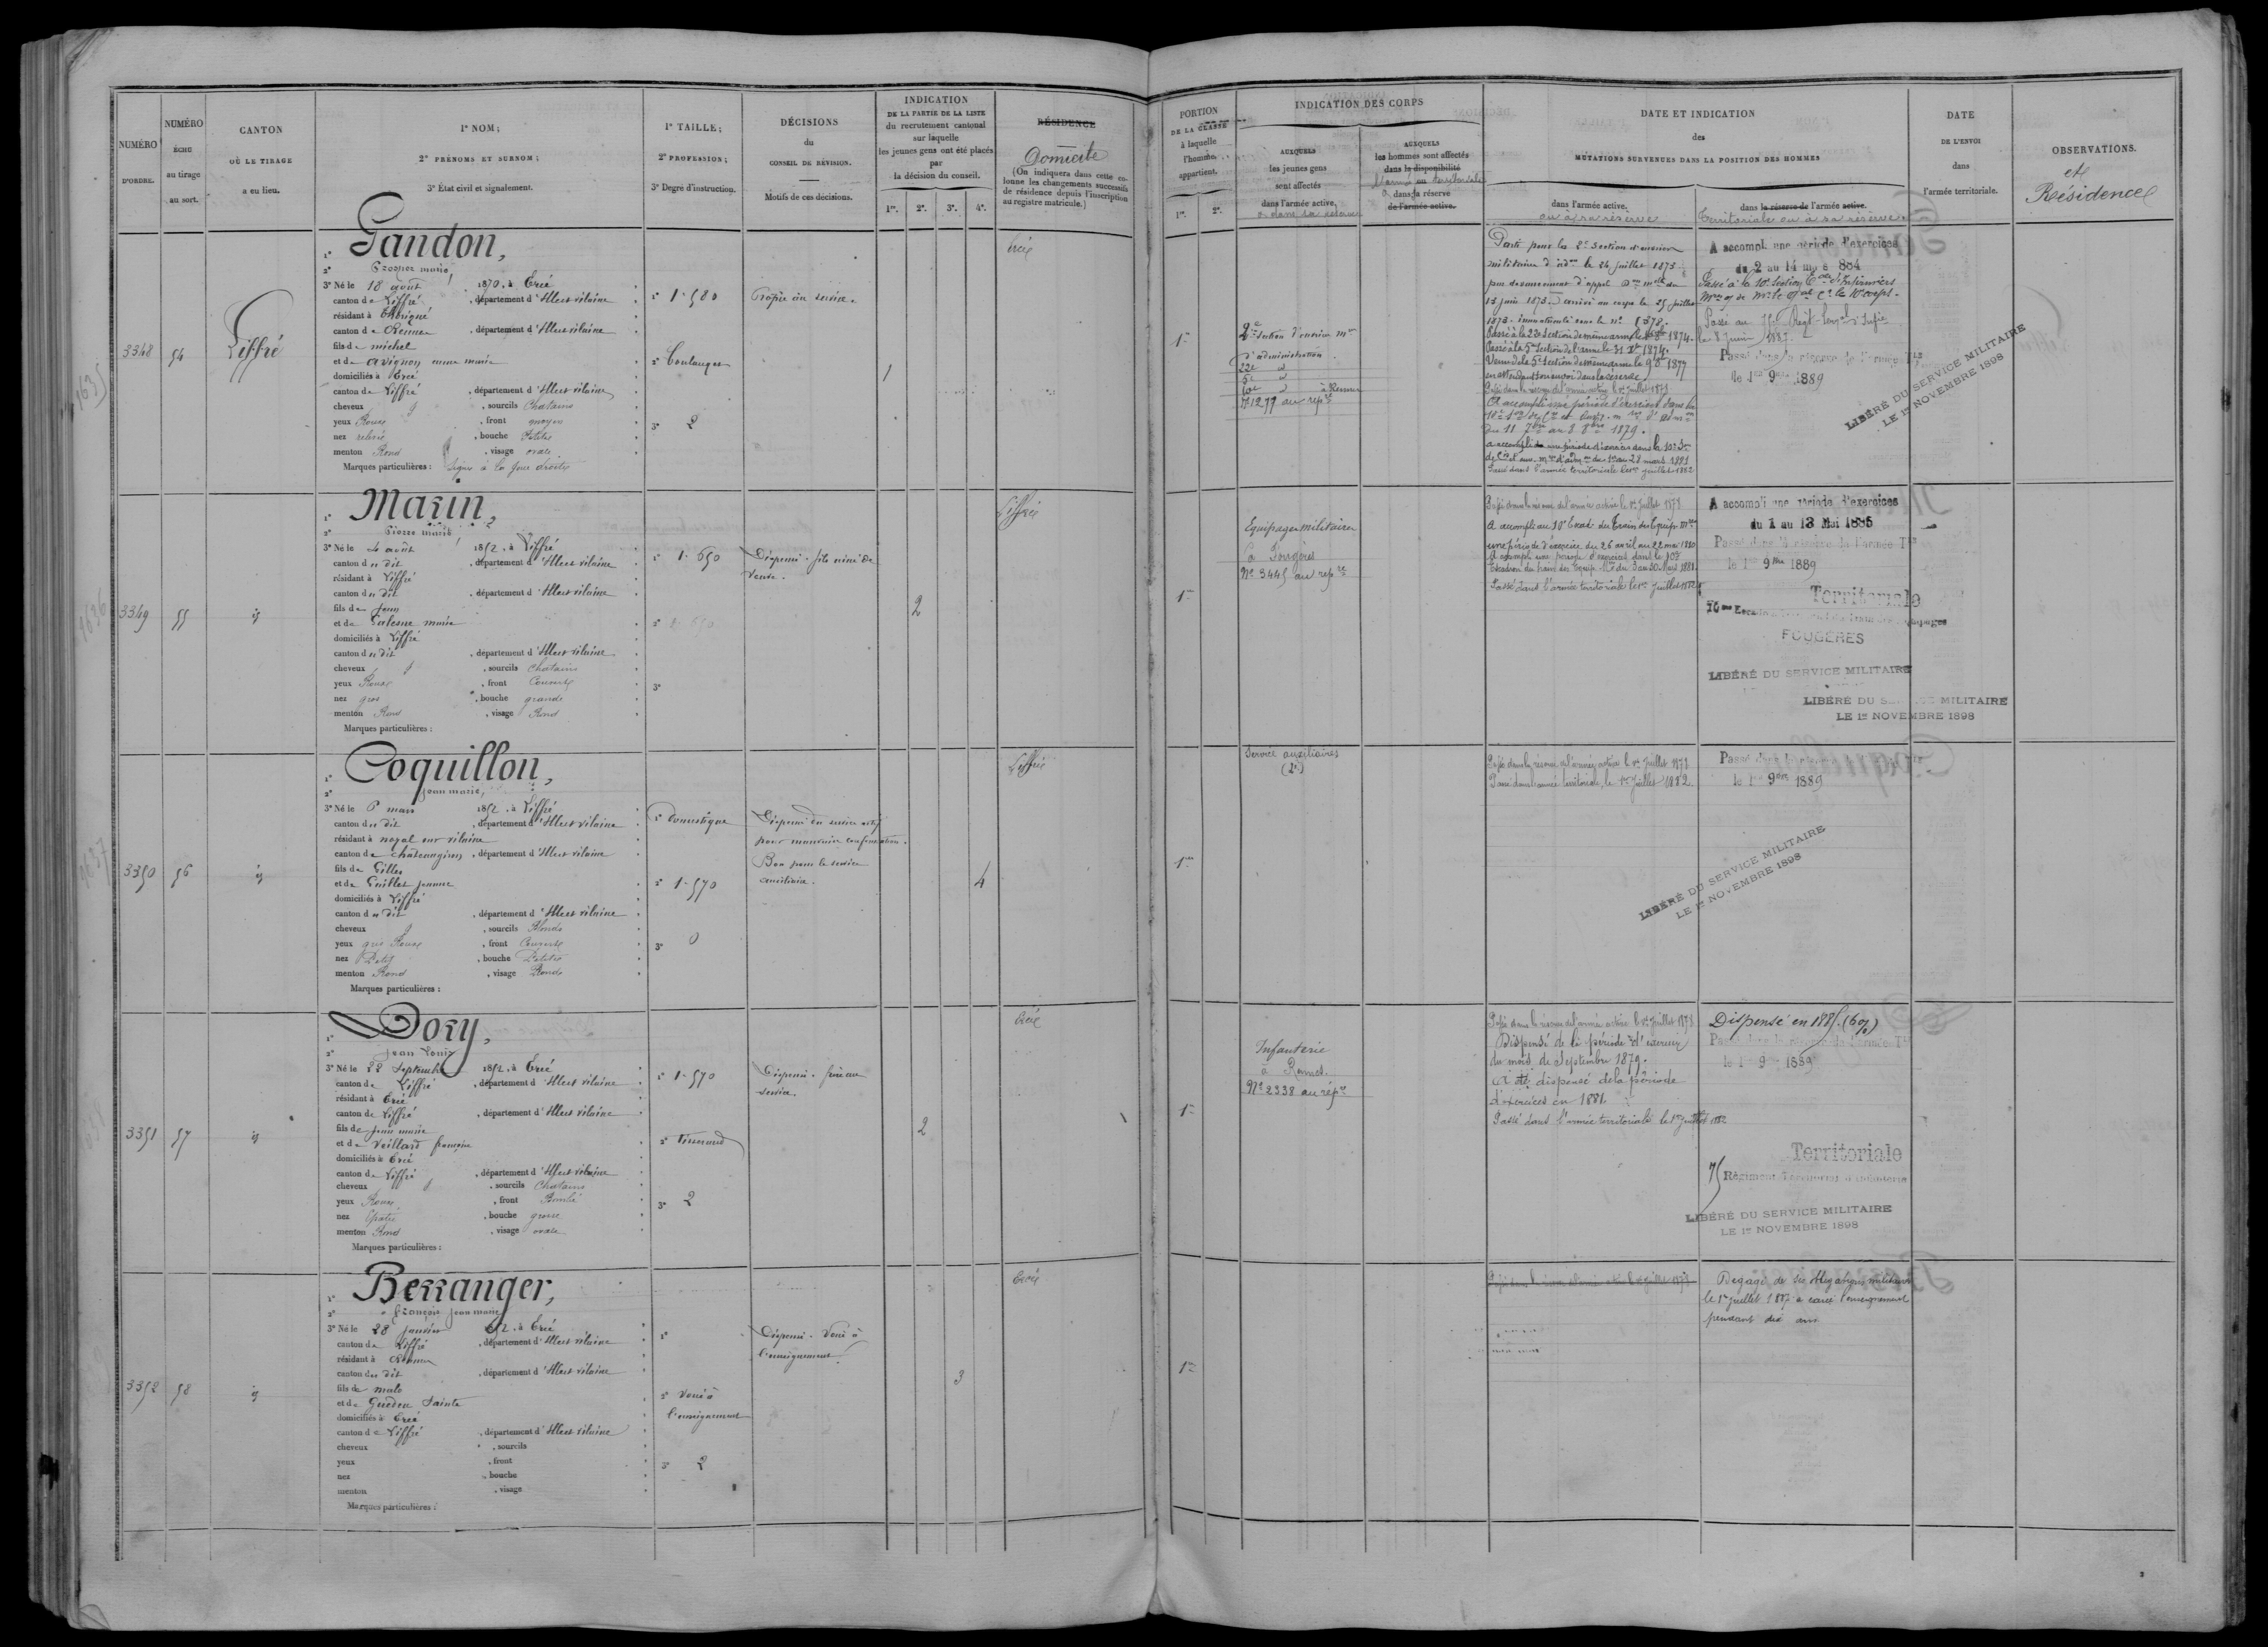 NUMÉRO
D'ORDRE.
NUMÉRO
ÉCHU
au tirage
au sort.
CANTON
OÙ LE TIRAGE
a eu lieu.
1º NOM;
2º PRÉNOMS ET SURNOM;
3º État civil et signalement.
1º TAILLE;
2º PROFESSION;
3º Degré d'instruction.
DÉCISIONS
du
CONSEIL DE RÉVISION.
Motifs de ces décisions.
INDICATION
DE LA PARTIE DE LA LISTE
du recrutement cantonal
sur laquelle
les jeunes gens ont été placés
par
la décision du conseil.
1re. 2e. 3e. 4e.
RÉSIDENCE
Domicile
(On indiquera dans cette colonne les changements successifs
de résidence depuis l'inscription
au registre matricule.)
PORTION
DE LA CLASSE
à laquelle
l'homme
appartient.
1re. 2e.
INDICATION DES CORPS
AUXQUELS
les jeunes gens
sont affectés
dans l'armée active,
o dans sa réserve
AUXQUELS
les hommes sont affectés
dans la disponibilité
l'armée territoriale
dans sa réserve
de l'armée active.
DATE ET INDICATION
des
MUTATIONS SURVENUES DANS LA POSITION DES HOMMES
dans l'armée active.
ou à sa réserve
dans la réserve de l'armée active.
Territoriale ou à sa réserve.
DATE
DE L'ENVOI
dans
l'armée territoriale.
OBSERVATIONS.
et
Résidence
3348
54
Liffré
1º Gandon,
2º Prosper marie
3º Né le 18 août 1870, à Ercé
canton de Liffré, département d'Ille et vilaine
résidant à
canton de Rennes, département d'Ille et vilaine
fils de michel
et de avignon anne marie
domiciliés à Ercé
canton de Liffré, département d'Ille et vilaine
cheveux, sourcils Chatains
yeux Roux, front moyen
nez relevé, bouche Petite
menton Rond, visage ovale
Marques particulières : Signe à la joue droite
1º 1.580
2º Boulanger
3º 2
Propre au service.
1
Ercé
1re
2e Section d'ouvriers mres
d'administration
22e d
5e d
10e d à Rennes
Nº 1279 au repre
Parti pour la 2e Section d'ouvriers
militaire d'adon le 24 juillet 1873
13 juin 1873. arrivé au corps le 25 juillet
1873. immatriculé sous le nº 1878.
Passé à la 22e Section de même arme 1874.
Passé à la 5e Section de l'arme le 31 Xbre 1874.
Venu de la 5e Section de même arme le 9 8bre 1877
en attendant son envoi dans la réserve
Passé dans la réserve de l'armée active le 1er Juillet 1878
A accompli une période d'exercices dans la
du 11 7bre au 8 8bre 1879.
a accompli une période d'exercices dans la 10e Son
du 1er au 28 mars 1881
Passé dans l'armée territoriale le 1er Juillet 1882
A accompli une période d'exercices
du 2 au 14 mai 1884
Passé à la 10e Section d'Infirmiers
Passé au 75e Régt d'Infie
le 8 Juin 1887.
Passé dans la réserve de l'armée Tle
le 1er 9bre 1889
LIBÉRÉ DU SERVICE MILITAIRE
LE 1er NOVEMBRE 1898
3349
55
id
1º Marin,
2º Pierre marie
3º Né le 4 août 1852, à Liffré
canton du dit, département d'Ille et vilaine
résidant à Liffré
canton du dit, département d'Ille et vilaine
fils de Jean
et de Salesne marie
domiciliés à Liffré
canton du dit, département d'Ille et vilaine
cheveux, sourcils Chatains
yeux Roux, front Couvert
nez gros, bouche grande
menton Rond, visage Rond
Marques particulières :
1º 1.650
2º
3º
Dispensé. fils aîné de
veuve.
2
Liffré
1re
Equipages militaires
à Fougères
Nº 3445 au repre
Passé dans la réserve de l'armée active le 1er Juillet 1878
A accompli au 10e Escadn du Train des Equips mres
une période d'exercices du 26 avril au 22 mai 1880
A accompli une période d'exercices dans le 10e
Escadron du train des Equip. Mres du 3 au 30 Mars 1881.
Passé dans l'armée territoriale le 1er Juillet 1882
A accompli une période d'exercices
du 1 au 13 Mai 1885
Passé dans la réserve de l'armée Tle
le 1er 9bre 1889
Territoriale
FOUGÈRES
LIBÉRÉ DU SERVICE MILITAIRE
LIBÉRÉ DU SERVICE MILITAIRE
LE 1er NOVEMBRE 1898
3350
56
id
1º Coquillon,
2º jean marie,
3º Né le 8 mars 1852, à Liffré
canton du dit, département d'Ille et vilaine
résidant à noyal sur vilaine
canton de châteaugiron, département d'Ille et vilaine
fils de Gilles
et de Guillet jeanne
domiciliés à Liffré
canton du dit, département d'Ille et vilaine
cheveux, sourcils Blonds
yeux gris Roux, front Couvert
nez Petit, bouche Petite
menton Rond, visage Rond
Marques particulières :
1º Domestique
2º 1.570
3º 0
Dispensé du service actif
pour mauvaise conformation.
Bon pour le service
auxiliaire.
4
Liffré
1re
Service auxiliaires
(2e)
Passé dans la réserve de l'armée active le 1er Juillet 1878
Passé dans l'armée territoriale le 1er Juillet 1882
Passé dans la
le 1er 9bre 1889
LIBÉRÉ DU SERVICE MILITAIRE
LE 1er NOVEMBRE 1898
3351
57
id
1º Dory,
2º Jean Louis
3º Né le 22 Septembre 1852, à Ercé
canton de Liffré, département d'Ille et vilaine
résidant à Ercé
canton de Liffré, département d'Ille et vilaine
fils de jean marie
et de Veillard françoise
domiciliés à Ercé
canton de Liffré, département d'Ille et vilaine
cheveux, sourcils Chatains
yeux Roux, front Bombé
nez Epaté, bouche grosse
menton Rond, visage ovale
Marques particulières :
1º 1.570
2º Tisserand
3º 2
Dispensé. frère au
service.
2
Ercé
1re
Infanterie
à Rennes.
Nº 2338 au répre
Passé dans la réserve de l'armée active le 1er Juillet 1878
Dispensé de la période d'exercices
du mois de Septembre 1879.
A été dispensé de la période
d'exercices en 1881.
Passé dans l'armée territoriale le 1er Juillet 1882
Dispensé en 1885. (6%)
Passé dans la réserve de l'armée Tle
le 1er 9 1889
Territoriale
75 Régiment Territorial d'infanterie
LIBÉRÉ DU SERVICE MILITAIRE
LE 1er NOVEMBRE 1898
3352
58
id
1º Berranger,
2º françois jean marie
3º Né le 28 janvier 1852, à Ercé
canton de Liffré, département d'Ille et vilaine
résidant à Rennes
canton du dit, département d'Ille et vilaine
fils de malo
et de Guedeu Sainte
domiciliés à Ercé
canton de Liffré, département d'Ille et vilaine
cheveux, sourcils
yeux, front
nez, bouche
menton, visage
Marques particulières :
1º
2º Voué à
l'enseignement
3º 2
Dispensé. Voué à
l'enseignement.
3
Ercé
1re
Passé dans la réserve de l'armée active le 1er Juillet 1878
Dégagé de ses obligations militaires
le 1er Juillet 1887 a exercé l'enseignement
pendant dix ans